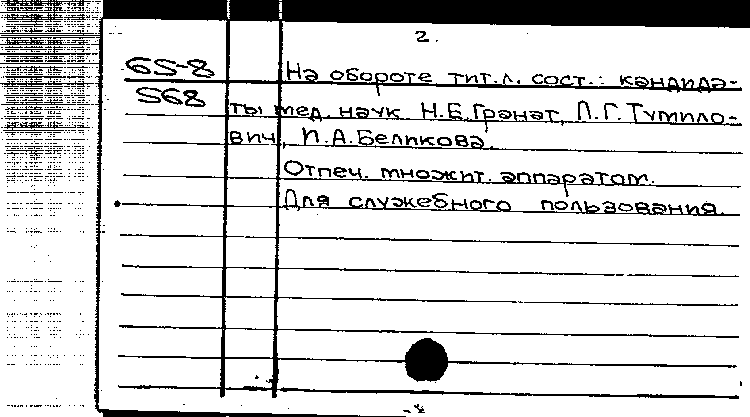 2.
65-8 На обороте тит.л. сост.: кандида-
568 ты мед. наук Н.Б.Гранат, Л.Г.Тумило-
вич, П.А.Беликова.
Отпеч. множит. аппаратом.
Для служебного пользования.